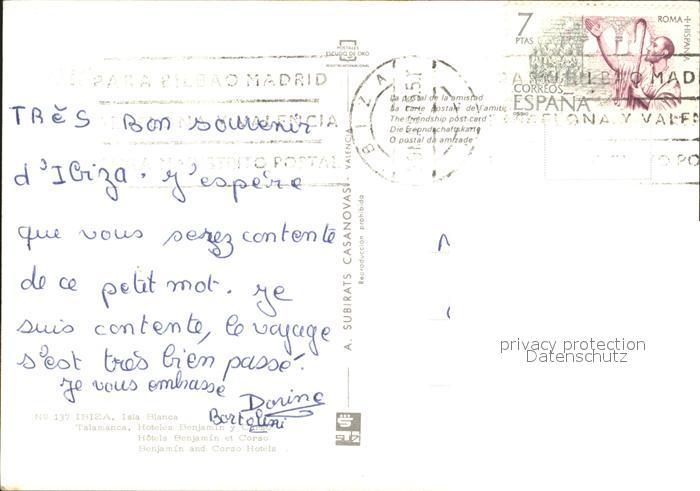 TRèS Bon souvenir
d'Ibiza. J'espère
que vous serez contente
de ce petit mot. Je
suis contente, le voyage
s'est très bien passé.
Je vous embrasse
Dorine
Bortolini
Nº 137 IBIZA, Isla Blanca
Talamanca, Hoteles Benjamín y Corso
Hôtels Benjamin et Corso
Benjamin and Corso Hotels
POSTALES
ESCUDO DE ORO
A. SUBIRATS CASANOVAS. VALENCIA
Reproducción prohibida
SUBI
La postal de la amistad
La Carte postale de l'amitié
The friendship post-card
Die Freundschaftskarte
O postal da amizade
IBIZA
PARA BILBAO MADRID
BARCELONA Y VALENCIA
DISTRITO POSTAL
7
PTAS
ROMA + HISPANIA
CORREOS
ESPAÑA
PARA BILBAO MAD
BARCELONA Y VALEN
privacy protection
Datenschutz